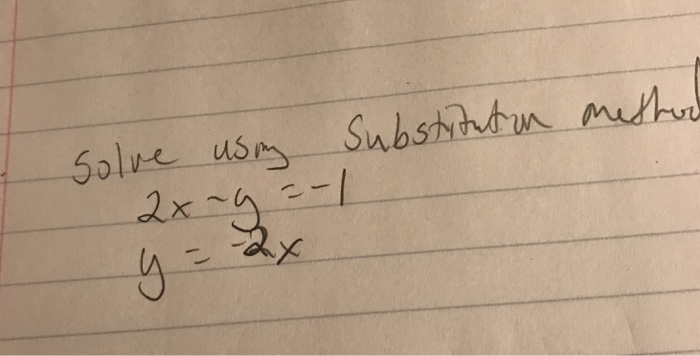 Solve using Substitution method
2x - y = -1
y = -2x